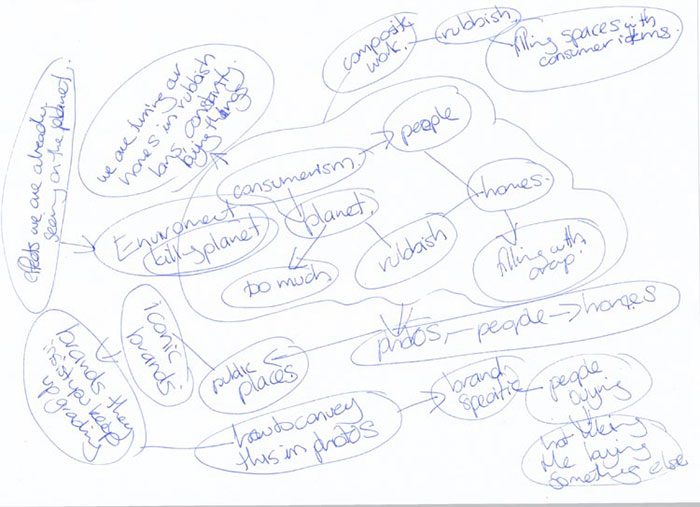 composite
work.
rubbish
filling spaces with
consumer items.
effects we are already
seeing on the planet.
we are turning our
homes in rubbish
bins constantly
buying things
people
consumerism.
homes.
planet.
Enviroment
killing planet
rubbish
too much
filling with
crap.
photos, people homes
iconic
brands.
public
places
brands they
insist you keep
upgrading
how to convey
this in photos
brand
specific
people
buying
not liking
me buying
something else